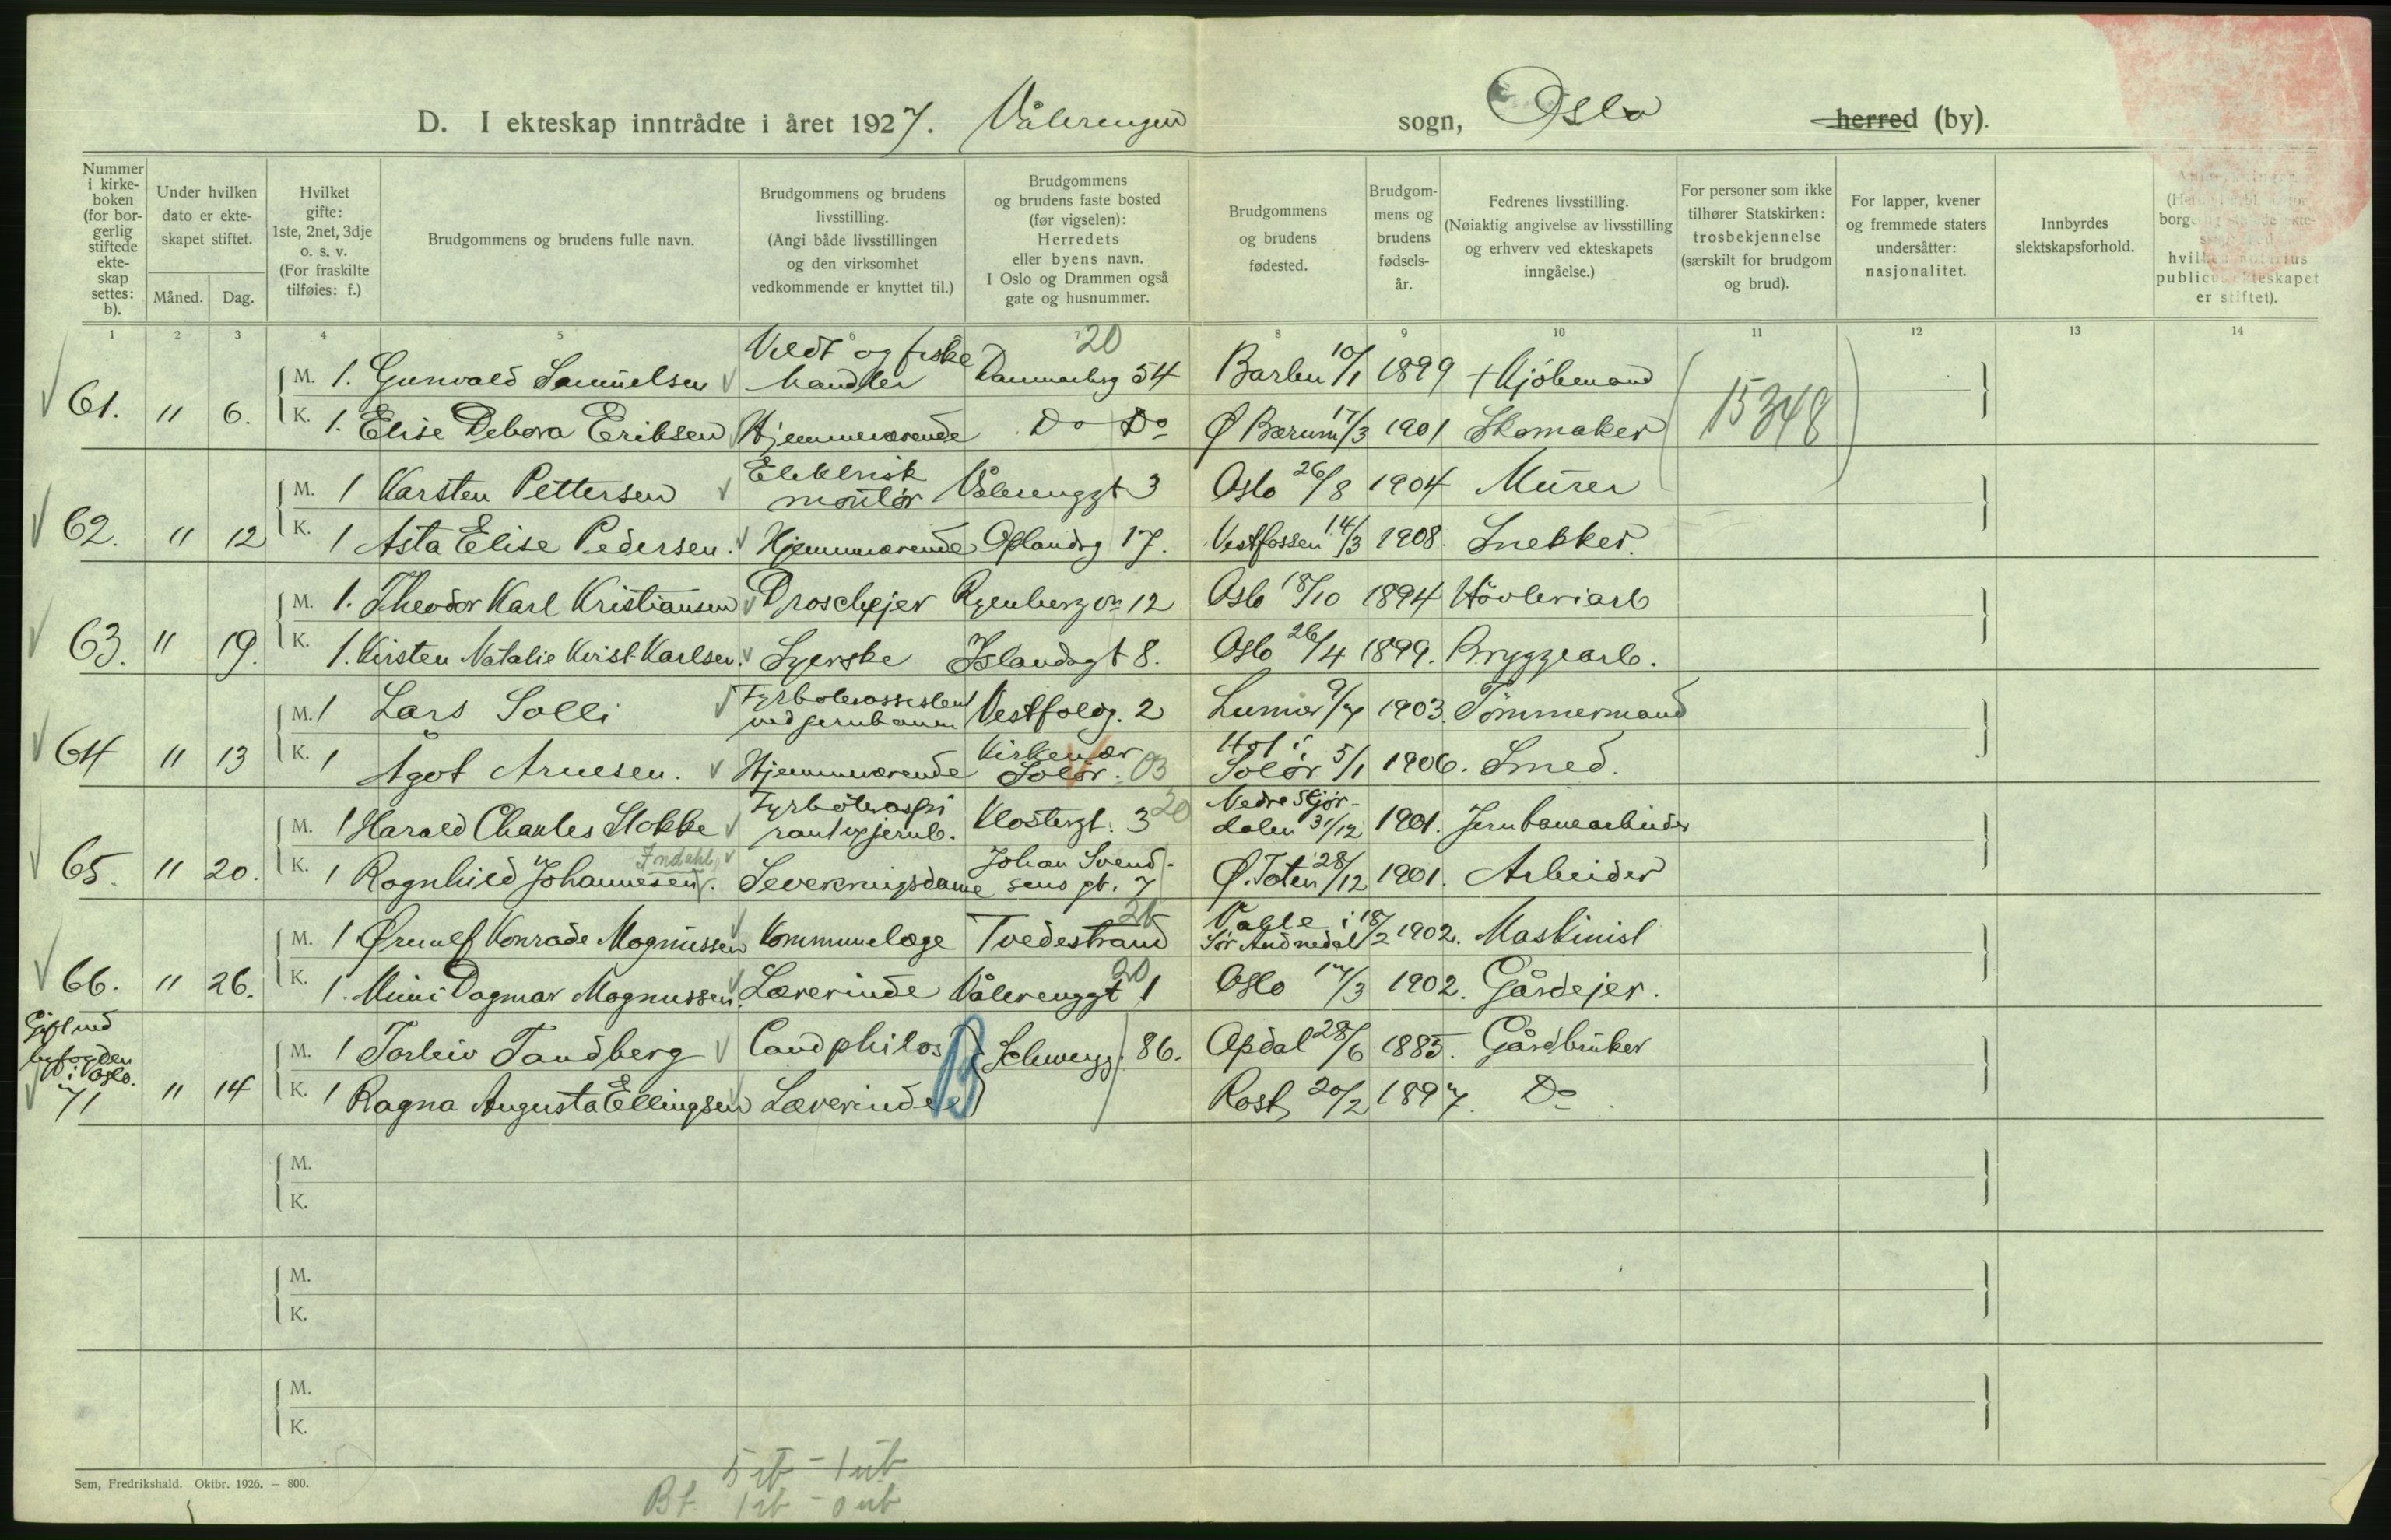 D. I ekteskap inntrådte i året 1927. Vålerengen sogn, Oslo herred (by).
Nummer i kirke-boken (for bor-gerlig stiftede ekte-skap settes: b).
Under hvilken dato er ekte-skapet stiftet.
Måned. Dag.
Hvilket gifte: 1ste, 2net, 3dje o. s. v. (For fraskilte tilføies: f.)
Brudgommens og brudens fulle navn.
Brudgommens og brudens livsstilling. (Angi både livsstillingen og den virksomhet vedkommende er knyttet til.)
Brudgommens og brudens faste bosted (før vigselen): Herredets eller byens navn. I Oslo og Drammen også gate og husnummer.
Brudgommens og brudens fødested.
Brudgom-mens og brudens fødsels-år.
Fedrenes livsstilling. (Nøiaktig angivelse av livsstilling og erhverv ved ekteskapets inngåelse.)
For personer som ikke tilhører Statskirken: trosbekjennelse (særskilt for brudgom og brud).
For lapper, kvener og fremmede staters undersåtter: nasjonalitet.
Innbyrdes slektskapsforhold.
hvilken notarius publicus ekteskapet er stiftet).
1 2 3 4 5 6 7 8 9 10 11 12 13 14
20
61. " 6. M. 1. Gunvald Samuelsen Vildt og fiske handler Danmarksg 54 Barbu 10/1 1899 + Kjöbmand
K. 1. Elise Debora Eriksen Hjemmeværende Do Do Ø Bærum 17/3 1901 Skomaker 15348
62. " 12 M. 1 Karsten Pettersen Elektrisk montör Vålerenggt 3 Oslo 26/8 1904 Murer
K. 1 Asta Elise Pedersen. Hjemmeværende Oplandsg 17. Vestfossen 14/3 1908. Snekker.
63. " 19. M. 1. Theodor Karl Kristiansen Droscheejer Ryenbergvn 12 Oslo 18/10 1894 Hövleriarb
K. 1. Kirsten Natalie Kvist Karlsen. Syerske Islandsgt 8. Oslo 26/4 1899. Bryggearb.
64 " 13 M. 1 Lars Solli Fyrböterassistent ved jernbanen Vestfoldg. 2 Lunner 9/7 1903. Tömmermand
K. 1 Ågot Arnesen. Hjemmeværende Kirkenær Solör. 03 Hof i Solör 5/1 1906. Smed.
65. " 20. M. 1 Harald Charles Stokke Fyrböteraspirant v jernb. Klostergt. 3 20 Nedre Stjördalen 31/12 1901. Jernbanearbeider
K. 1 Ragnhild Johannesen. Indahl Severeringsdame Johan Svendsens gt. 7 Ø. Toten 28/12 1901. Arbeider
66. " 26. M. 1 Ørnulf Konrade Magnussen Kommunelæge Tvedestrand Valle i Sör Audnedal 18/2 1902. Maskinist
K. 1. Mimi Dagmar Magnussen. Lærerinde Vålerenggt 1 20 Oslo 17/3 1902. Gårdejer.
Gift ved byfogden i Oslo.
71 " 14 M. 1 Torleiv Tandberg Cand philos Schweigg. 86. Opdal 28/6 1885. Gårdbruker
K. 1 Ragna Augusta Ellingsen Lærerinde Røst 20/2 1897. Do
M.
K.
M.
K.
M.
K.
Sem, Fredrikshald. Oktbr. 1926. — 800.